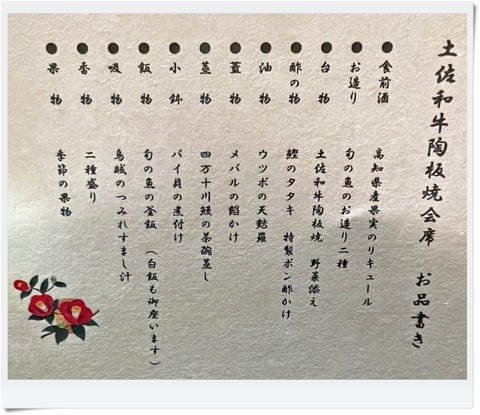 土佐和牛陶板焼会席 お品書き
食前酒 高知県産果実のリキュール
お造り 旬の魚のお造り二種
台物 土佐和牛陶板焼 野菜添え
酢の物 鰹のタタキ 特製ポン酢かけ
油物 ウツボの天麩羅
蓋物 メバルの餡かけ
蒸物 四万十川鰻の茶碗蒸し
小鉢 バイ貝の煮付け
飯物 旬の魚の釜飯 (白飯も御座います)
吸物 烏賊のつみれすまし汁
香物 二種盛り
果物 季節の果物